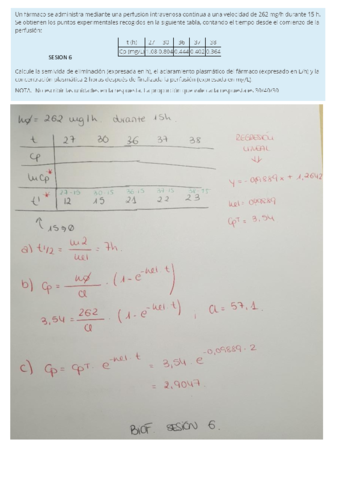 Un fármaco se administra mediante una perfusión intravenosa continua a una velocidad de 262 mg/h durante 15 h.
Se obtienen los puntos experimentales recogidos en la siguiente tabla, contando el tiempo desde el comienzo de la
perfusión:
t (h) 27 30 36 37 38
Cp (mg/L) 1.08 0.804 0.444 0.402 0.364
SESION 6
Calcule la semivida de eliminación (expresada en h), el aclaramiento plasmático del fármaco (expresado en L/h) y la
concentración plasmática 2 horas después de finalizada la perfusión (expresada en mg/L)
NOTA: No escribir las unidades en la respuesta. La proporción
kø = 262 mg/h durante 15h
t 27 30 36 37 38
Cp
ln Cp
t' 12 15 21 22 23
↑
15=0
REGRESIÓN
LINEAL
CpT = 3.54
a) t1/2 = ln2/kel = 7h.
b) Cp = kø/Cl · (1-e^-kel·t)
3,54 = 262/Cl · (1-e^-kel·t) , Cl = 57,1
c) Cp = CpT · e^-kel·t = 3,54 · e^-0,09889·2
= 2,9047.
BIOF SESIÓN 6.